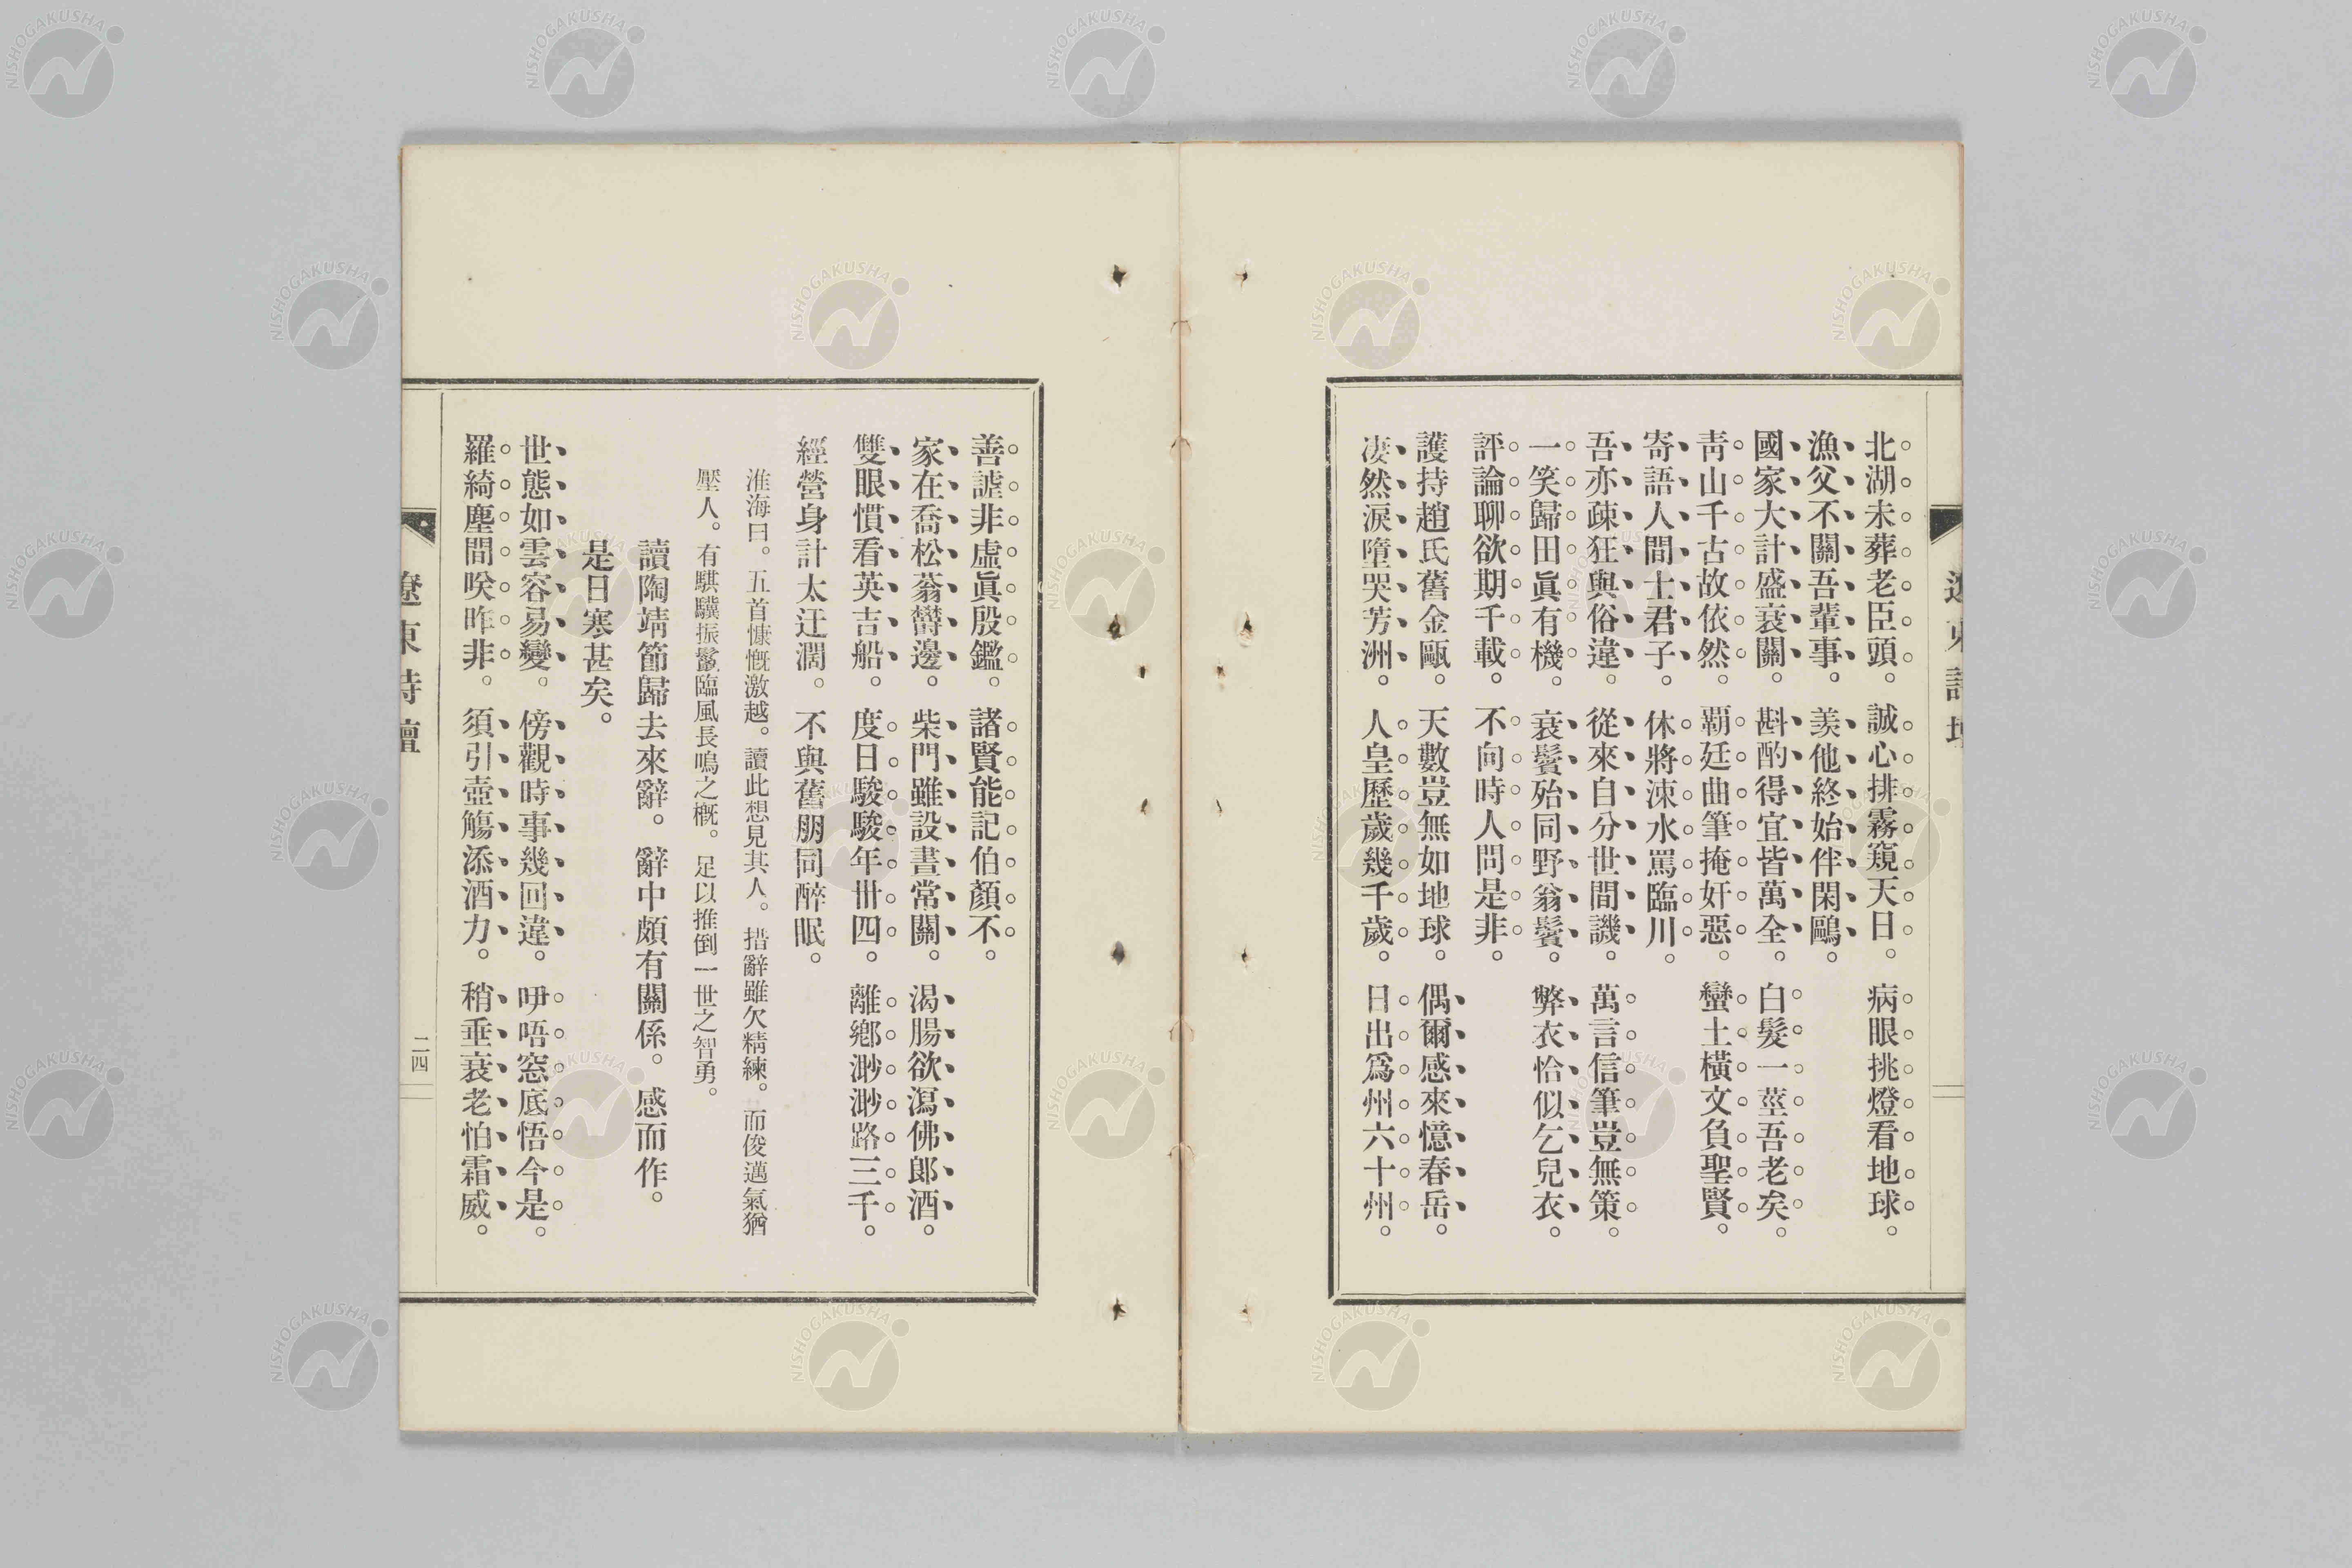 北湖未葬老臣頭。誠心排霧窺天日。病眼挑燈看地球。
漁父不關吾輩事。羨他終始伴閑鷗。
國家大計盛衰關。斟酌得宜皆萬全。白髮一莖吾老矣。
靑山千古故依然。覇廷曲筆掩奸惡。蠻土橫文負聖賢。
寄語人間士君子。休將涑水罵臨川。
吾亦疎狂與俗違。從來自分世間譏。萬言信筆豈無策。
一笑歸田眞有機。衰鬢殆同野翁鬢。弊衣恰似乞兒衣。
評論聊欲期千載。不向時人問是非。
護持趙氏舊金甌。天數豈無如地球。偶爾感來憶春岳。
凄然淚墮哭芳洲。人皇歷歲幾千歲。日出爲州六十州。
善謔非虛眞殷鑑。諸賢能記伯顏不。
家在喬松蓊欝邊。柴門雖設晝常關。渴腸欲瀉佛郎酒。
雙眼慣看英吉船。度日駸駸年卌四。離鄕渺渺路三千。
經營身計太迂濶。不與舊朋同醉眠。
淮海曰。五首慷慨激越。讀此想見其人。措辭雖欠精練。而俊邁氣猶
壓人。有騏驥振鬣臨風長鳴之槪。足以推倒一世之智勇。
讀陶靖節歸去來辭。辭中頗有關係。感而作。
是日寒甚矣。
世態如雲容易變。傍觀時事幾回違。咿唔窓底悟今是。
羅綺塵間咲昨非。須引壺觴添酒力。稍垂衰老怕霜威。
遼東詩壇
二四
NISHOGAKUSHA